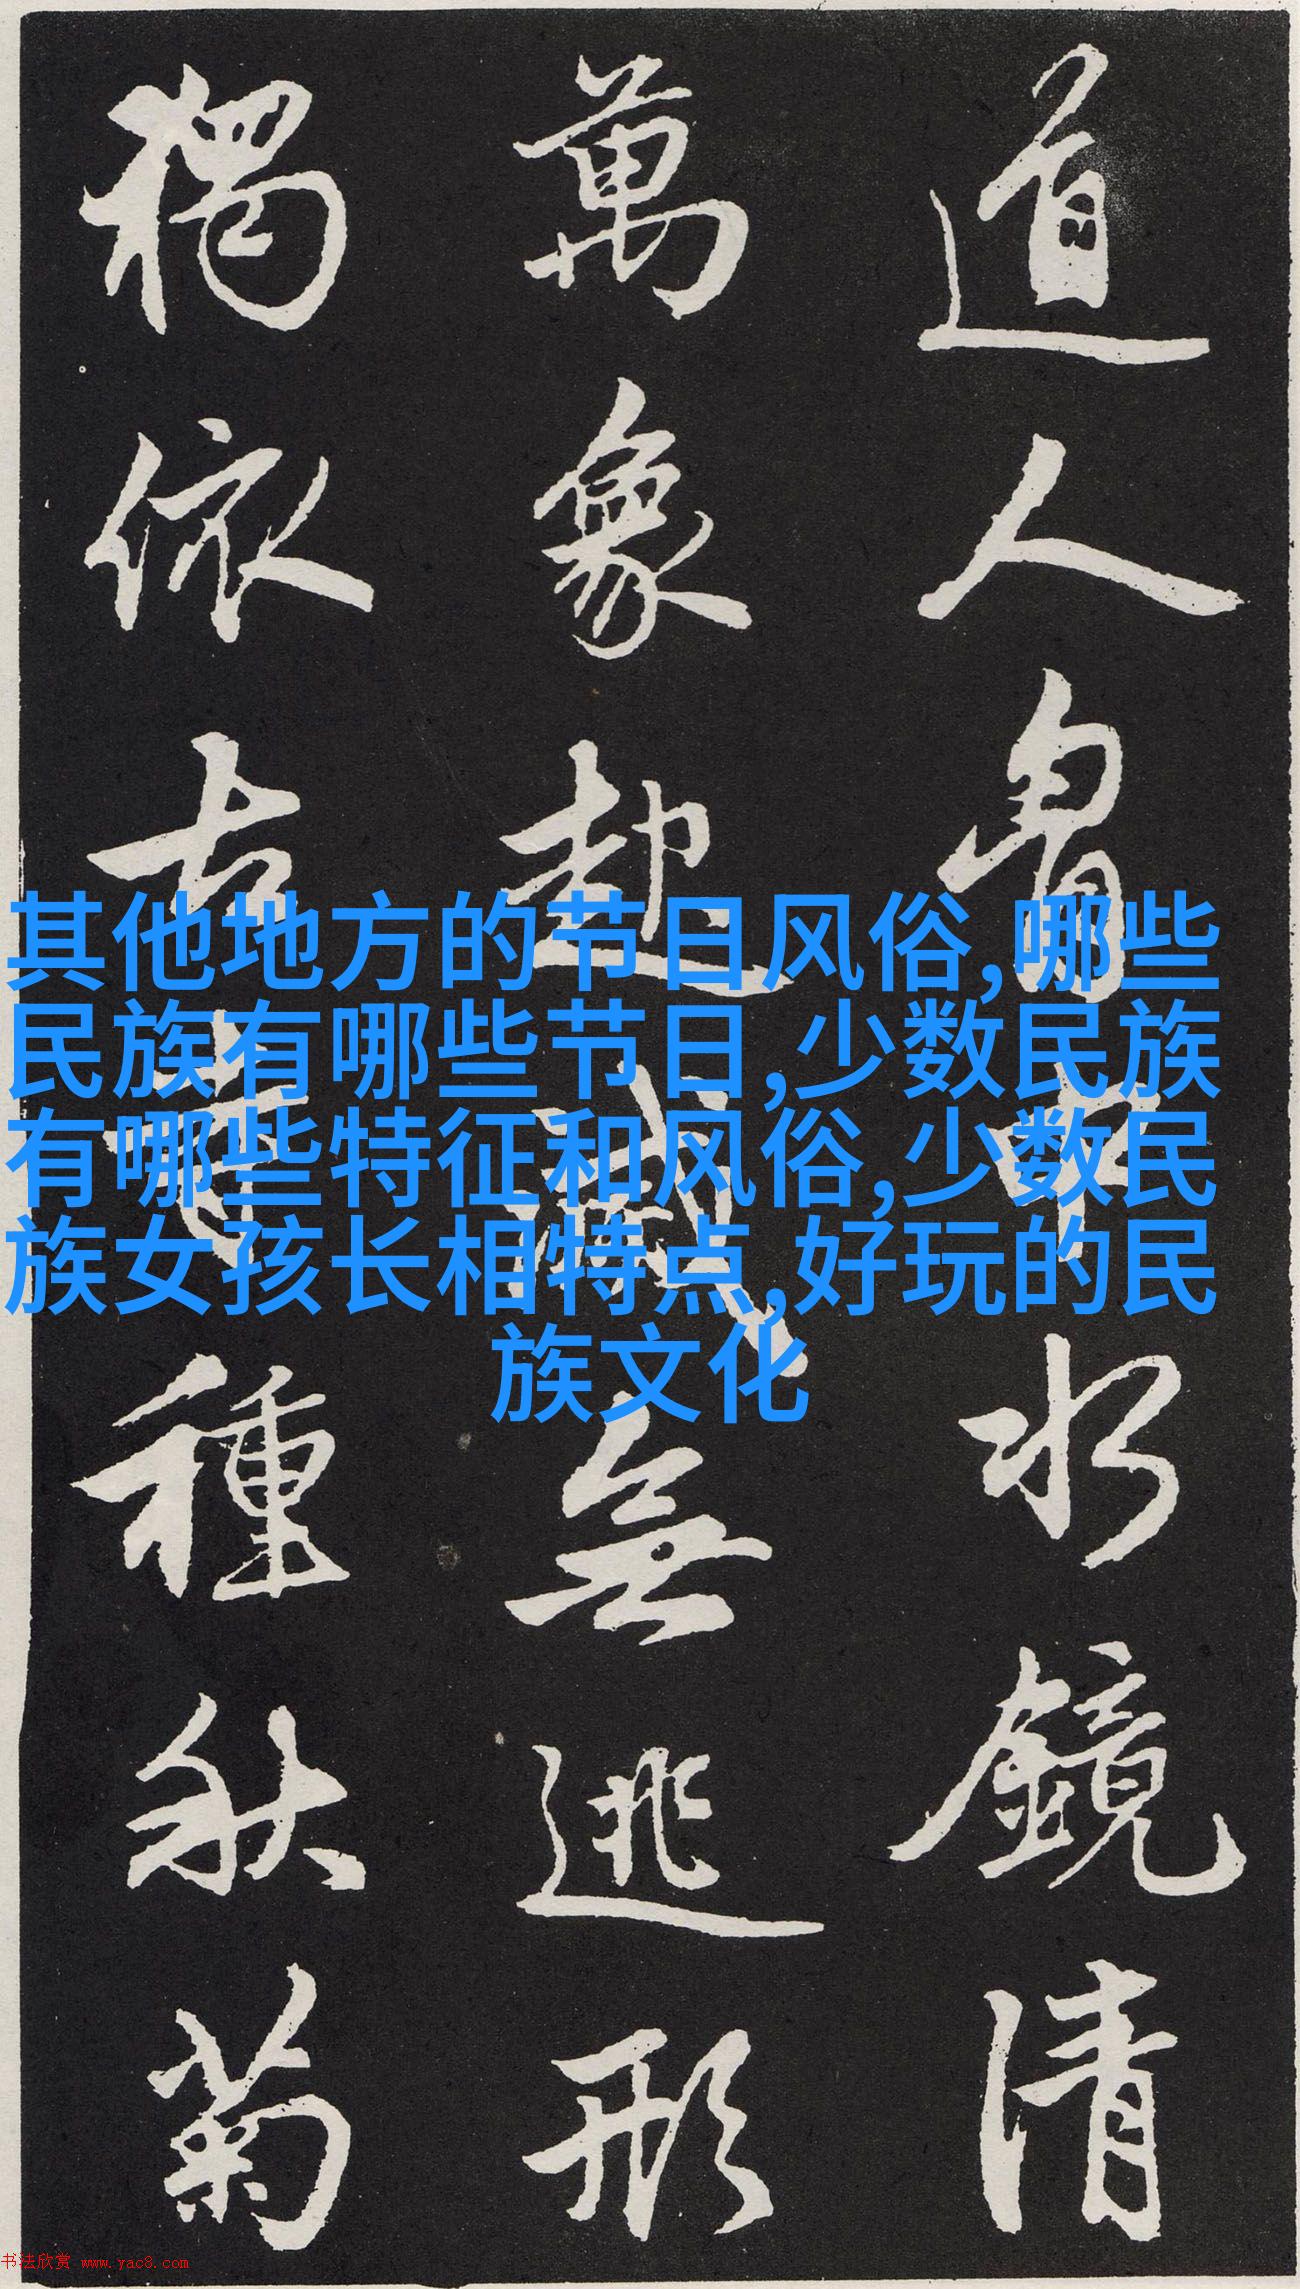 道人胷中水鏡清
萬象起滅無逃形
獨依古寺種秋菊
其他地方的节日风俗,哪些
民族有哪些节日,少数民族
有哪些特征和风俗,少数民
族女孩长相特点,好玩的民
族文化
书法欣赏 www.yac8.com